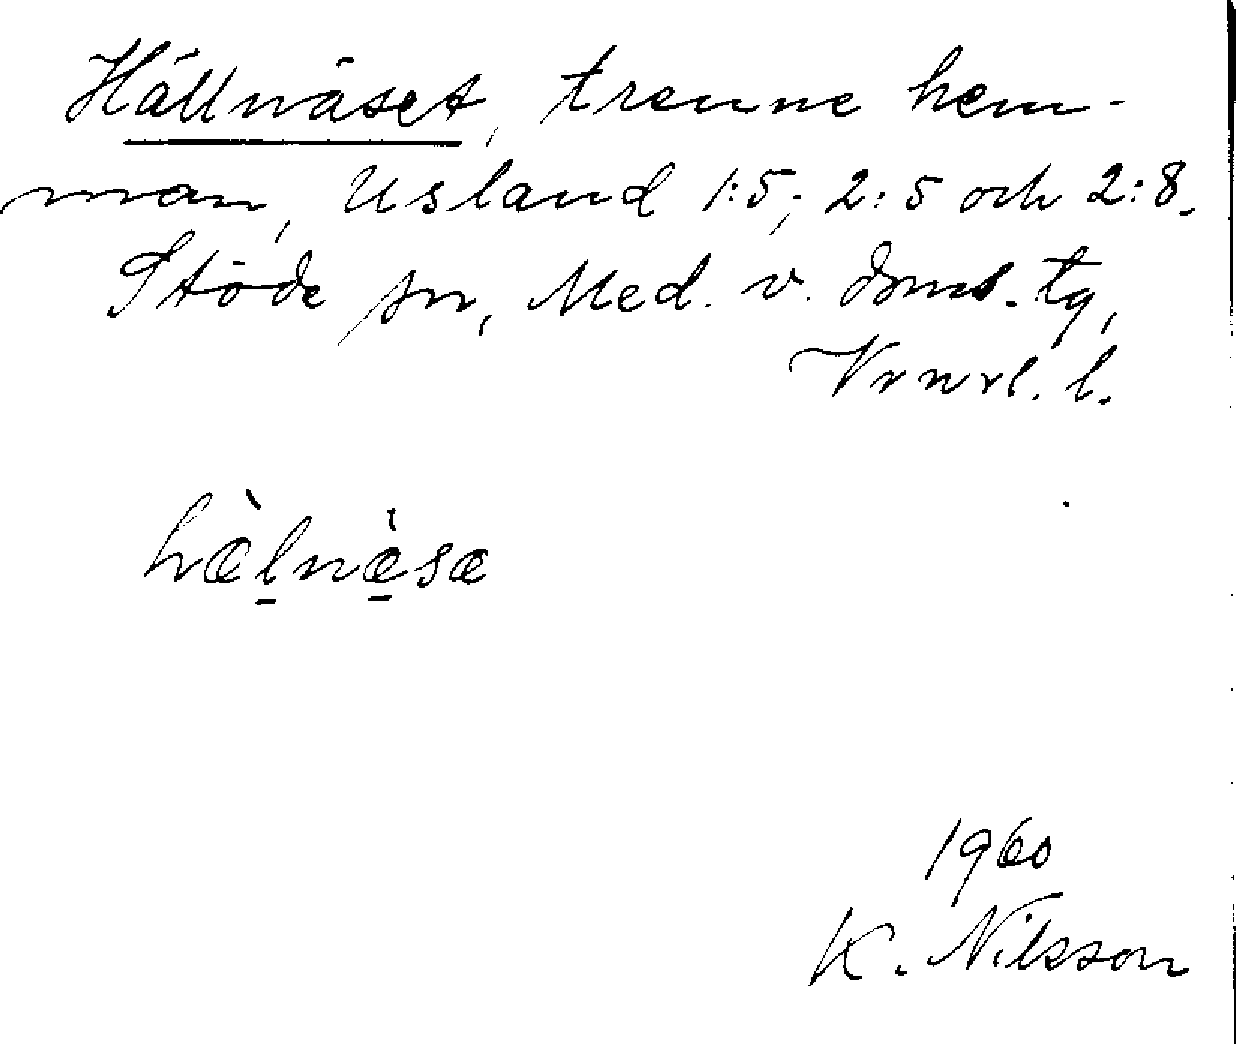 Hällnäset, trenne hem-
man, Usland 1:5; 2:5 och 2:8.
Stöde sn, Med. v. doms. tg,
Vrnrl. l.
hæ̀l̠næ̠̀sæ
1960
K. Nilsson